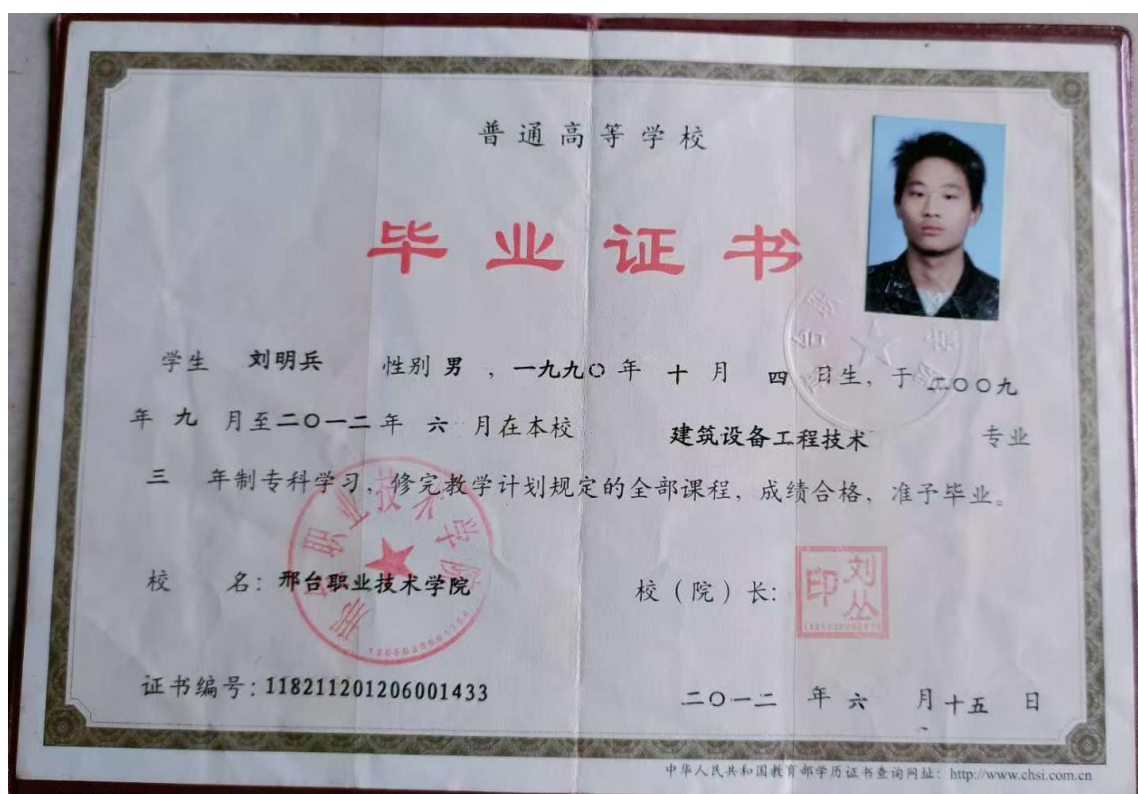 普通高等学校
毕业证书
学生 刘明兵 性别 男 ，一九九〇年 十 月 四 日生，于二〇〇九
年 九 月至二〇一二年 六 月在本校 建筑设备工程技术 专业
三 年制专科学习，修完教学计划规定的全部课程，成绩合格，准予毕业。
邢台职业技术学院
校 名：邢台职业技术学院
校（院）长：
刘丛印
证书编号：118211201206001433
二〇一二 年 六 月十五 日
中华人民共和国教育部学历证书查询网址：http://www.chsi.com.cn